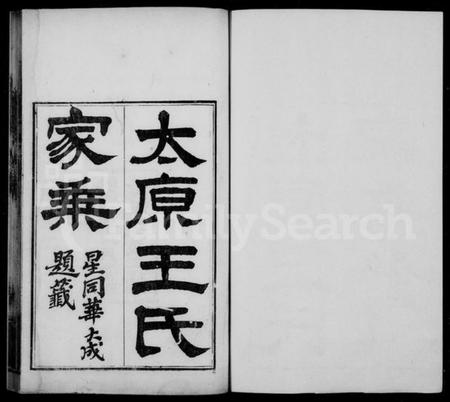 太原王氏
家乗
星同華大成
題籤
FamilySearch